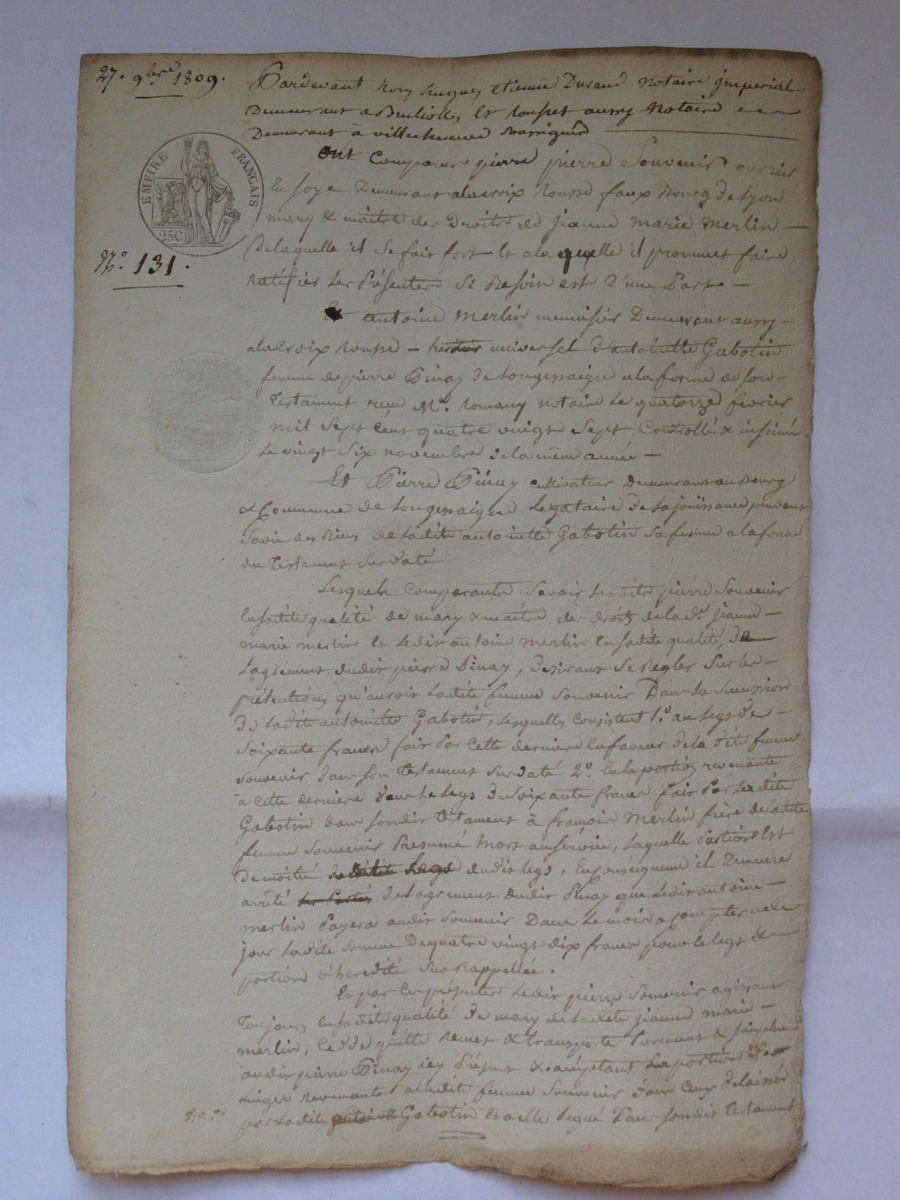 27. 9bre 1809.
Pardevant Nous Jacques Etienne Durand Notaire jmperial
Demeurant a et aussy Notaire
Demeurant à villechenève soussignés
EMPIRE FRANÇAIS
25C.
N.o 131.
Ont comparu pierre pierre Souvenir ouvrier
En soye Demeurant alacroix Rousse faux bourg de Lyon
mary & maitre des Droits de jeanne marie merlin
delaquelle il se fair fort et ala quelle il promet faire
ratifier les Présentes si Besoin est D'une Part
Et antoine Merlin menuisier Demeurant aussy
alacroix rousse heritier universel d'antoinette Gabotin
femme depierre Pinay de Longessaigne ala forme de son
Testament reçu Me. Romany notaire le quatorze fevrier
mil sept cent quatre vingt sept Controllé & insinué
Le vingt six novembre dela même année
Et Pierre Pinay cultivateur Demeurant au Bourg
& Commune de Longessaigne Legataire de la joüissance pendant
sa vie des Biens de ladite antoinette Gabotin sa femme ala forme
du Testament sus daté
Lesquels comparants savoir ledit pierre Souvenir
En sadite qualité de mary & maître des droits de lad. jeanne
marie merlin et ledit antoine merlin en sadite qualité, de
L'agrément dudit pierre Pinay, desirant se Regler sur les
prétentions qu'auroit ladite femme Souvenir Dans la succession
de ladite antoinette Gabotin, lesquelles consistent 1.o au legs de
soixante francs fait Par cette derniere en faveur de la dite femme
Souvenir dans son Testament sus daté 2.o En la portion revenante
à cette derniere dans le legs de soixante francs fait Par ladite
Gabotin dans son dit Testament à françois Merlin frère de ladite
femme Souvenir Présumé Mort au service, laquelle Portion est
de moitié dudit legs, En conséquence il Demeure
arrêté de l'agrement dudit Pinay que ledit antoine
merlin Payera audit Souvenir Dans le mois a compter de ce
jour ladite somme de quatre vingt dix francs pour le legs &
portion d'heredité sus rappellée.
Et par ces présentes ledit pierre Souvenir agissant
Toujours en sadite qualité de mary de ladite jeanne marie
merlin, Cede quitte remet & transporte Purement & simplement
audit pierre Pinay icy Présent & acceptant La portion de
Linges revenante aladite femme Souvenir dans ceux delaissés
par ladite antoinette Gabotin et a elle legué Dans son dit Testament